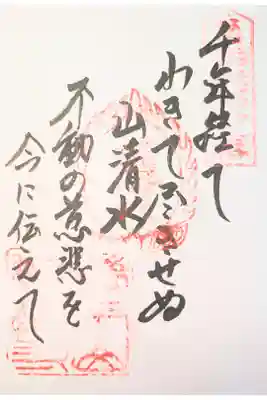 千年経て
わきて尽きせぬ
山清水
不動の慈悲を
今に伝えて